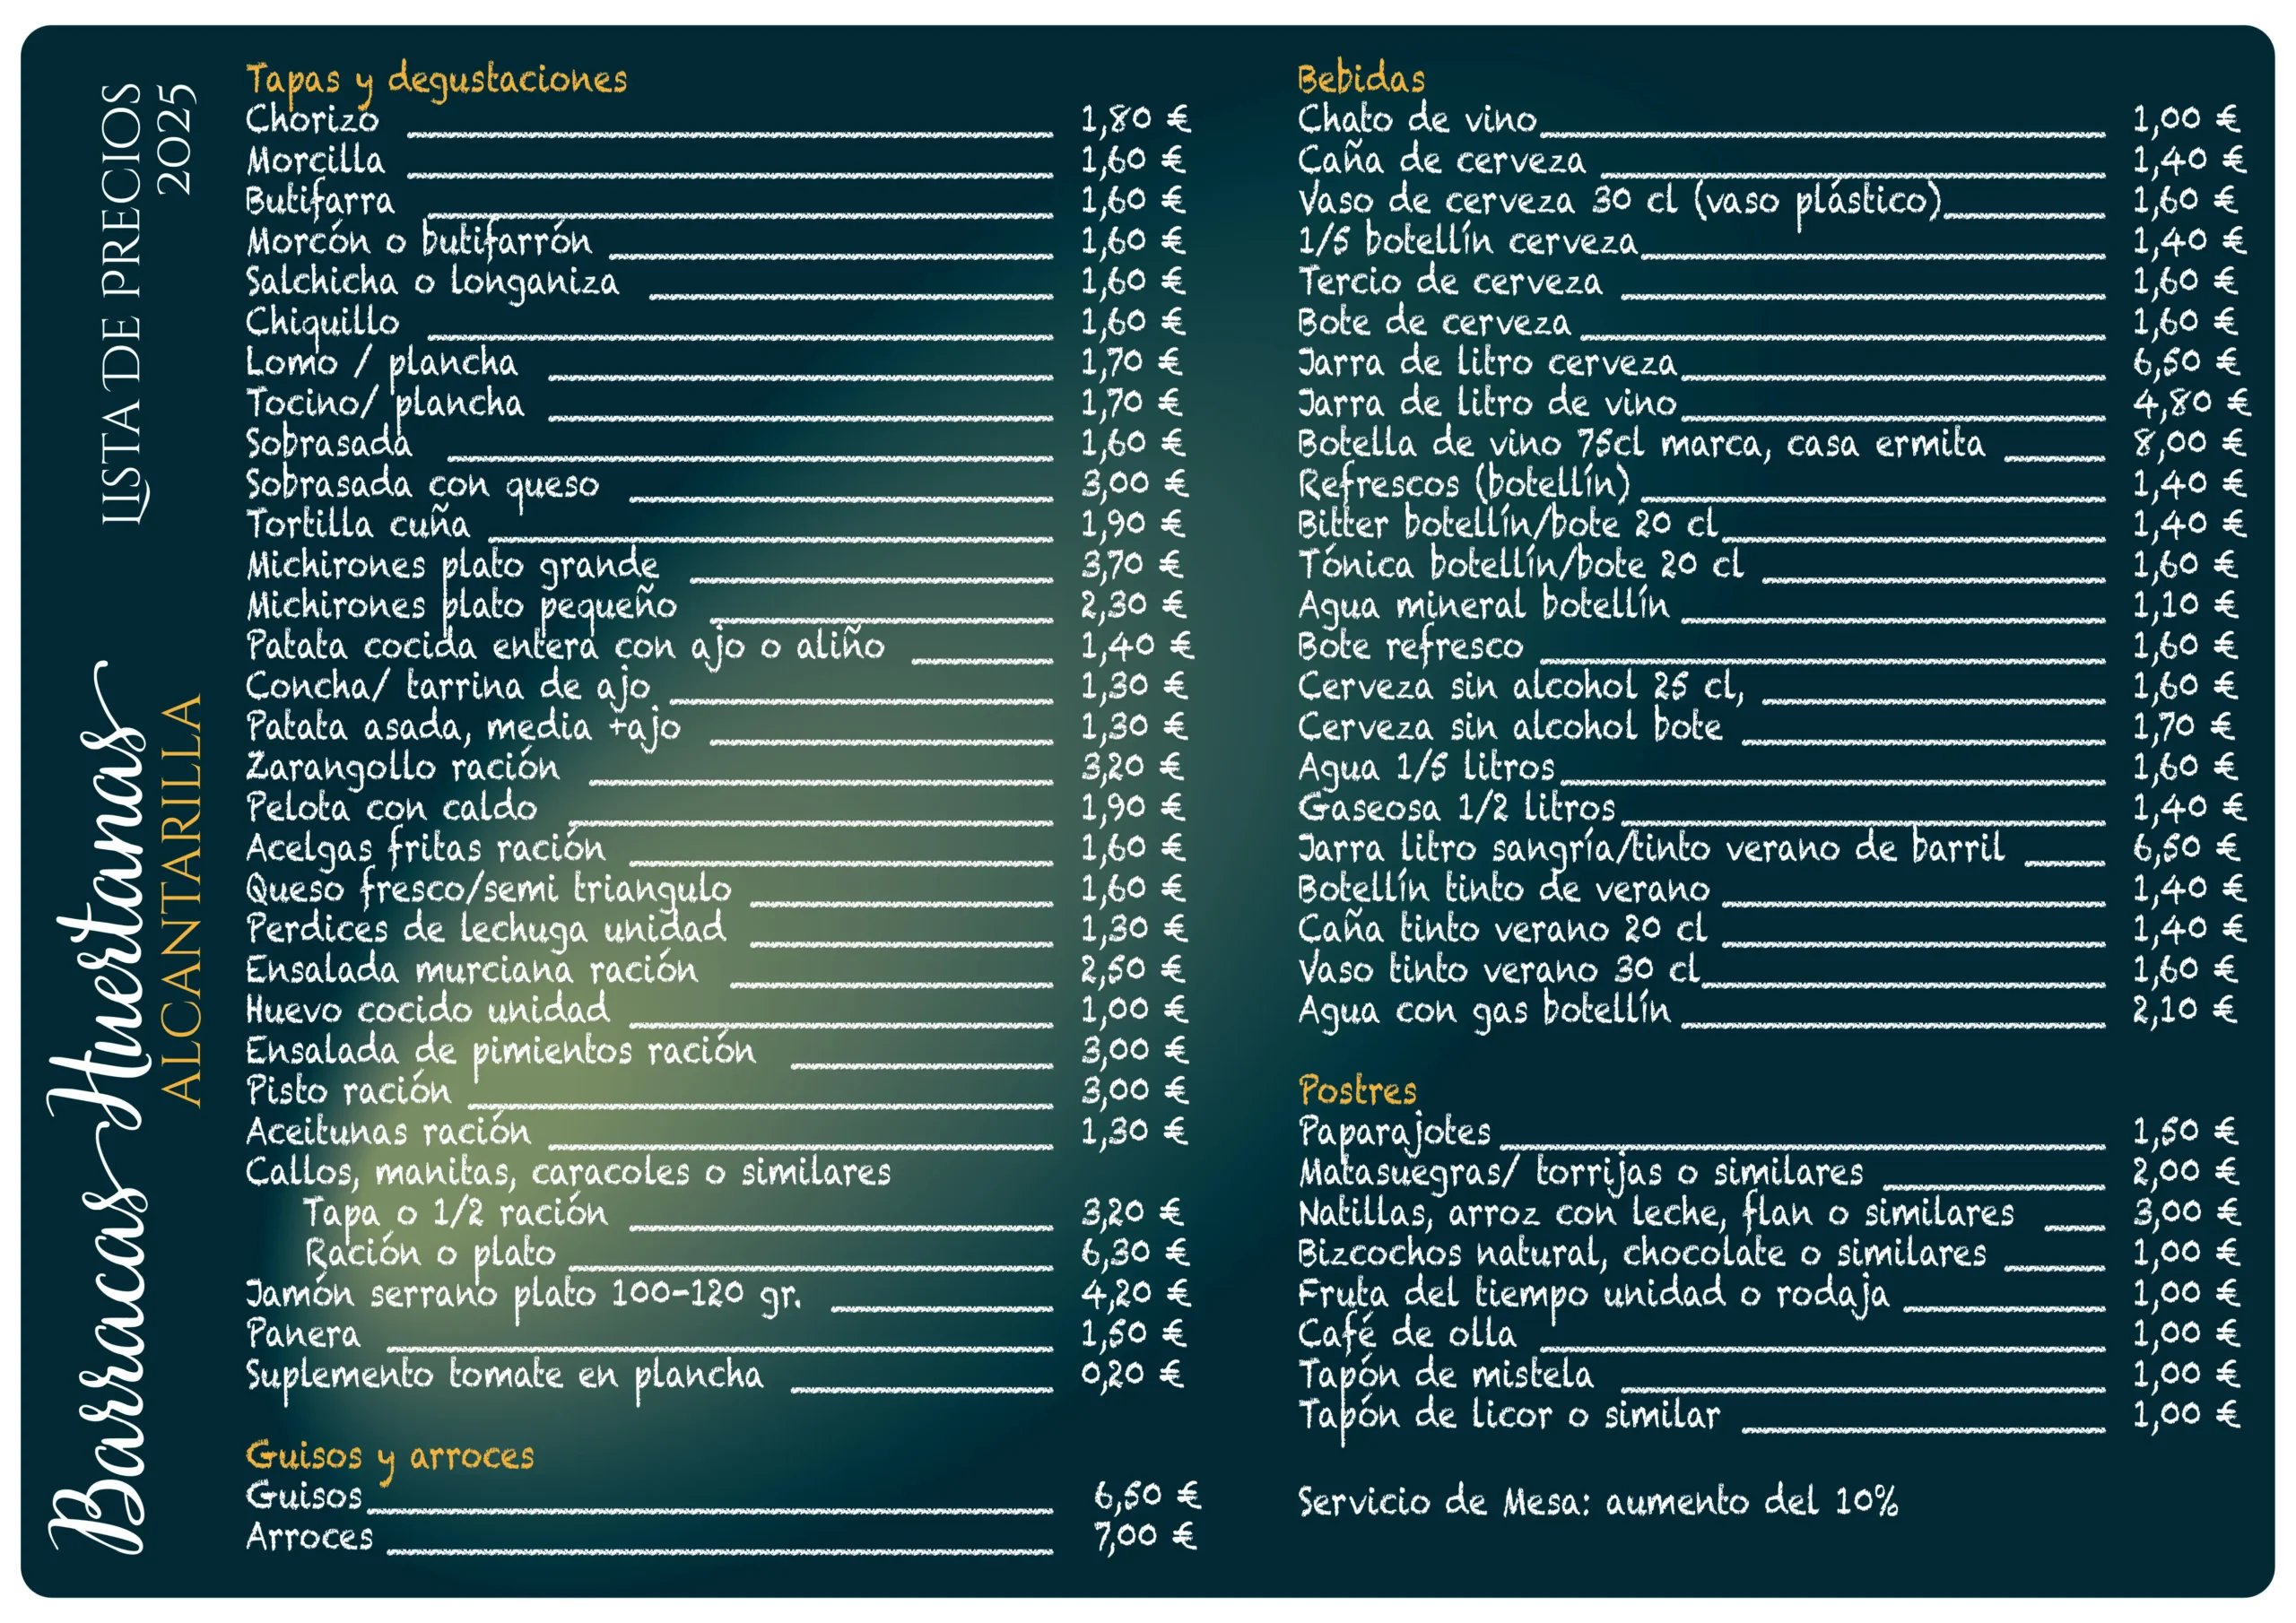 Barracas Huertanas
ALCANTARILLA
LISTA DE PRECIOS
2025
Tapas y degustaciones
Chorizo 1,80 €
Morcilla 1,60 €
Butifarra 1,60 €
Morcón o butifarrón 1,60 €
Salchicha o longaniza 1,60 €
Chiquillo 1,60 €
Lomo / plancha 1,70 €
Tocino/ plancha 1,70 €
Sobrasada 1,60 €
Sobrasada con queso 3,00 €
Tortilla cuña 1,90 €
Michirones plato grande 3,70 €
Michirones plato pequeño 2,30 €
Patata cocida entera con ajo o aliño 1,40 €
Concha/ tarrina de ajo 1,30 €
Patata asada, media +ajo 1,30 €
Zarangollo ración 3,20 €
Pelota con caldo 1,90 €
Acelgas fritas ración 1,60 €
Queso fresco/semi triangulo 1,60 €
Perdices de lechuga unidad 1,30 €
Ensalada murciana ración 2,50 €
Huevo cocido unidad 1,00 €
Ensalada de pimientos ración 3,00 €
Pisto ración 3,00 €
Aceitunas ración 1,30 €
Callos, manitas, caracoles o similares
Tapa o 1/2 ración 3,20 €
Ración o plato 6,30 €
Jamón serrano plato 100-120 gr. 4,20 €
Panera 1,50 €
Suplemento tomate en plancha 0,20 €
Guisos y arroces
Guisos 6,50 €
Arroces 7,00 €
Bebidas
Chato de vino 1,00 €
Caña de cerveza 1,40 €
Vaso de cerveza 30 cl (vaso plástico) 1,60 €
1/5 botellín cerveza 1,40 €
Tercio de cerveza 1,60 €
Bote de cerveza 1,60 €
Jarra de litro cerveza 6,50 €
Jarra de litro de vino 4,80 €
Botella de vino 75cl marca, casa ermita 8,00 €
Refrescos (botellín) 1,40 €
Bitter botellín/bote 20 cl 1,40 €
Tónica botellín/bote 20 cl 1,60 €
Agua mineral botellín 1,10 €
Bote refresco 1,60 €
Cerveza sin alcohol 25 cl, 1,60 €
Cerveza sin alcohol bote 1,70 €
Agua 1/5 litros 1,60 €
Gaseosa 1/2 litros 1,40 €
Jarra litro sangría/tinto verano de barril 6,50 €
Botellín tinto de verano 1,40 €
Caña tinto verano 20 cl 1,40 €
Vaso tinto verano 30 cl 1,60 €
Agua con gas botellín 2,10 €
Postres
Paparajotes 1,50 €
Matasuegras/ torrijas o similares 2,00 €
Natillas, arroz con leche, flan o similares 3,00 €
Bizcochos natural, chocolate o similares 1,00 €
Fruta del tiempo unidad o rodaja 1,00 €
Café de olla 1,00 €
Tapón de mistela 1,00 €
Tapón de licor o similar 1,00 €
Servicio de Mesa: aumento del 10%